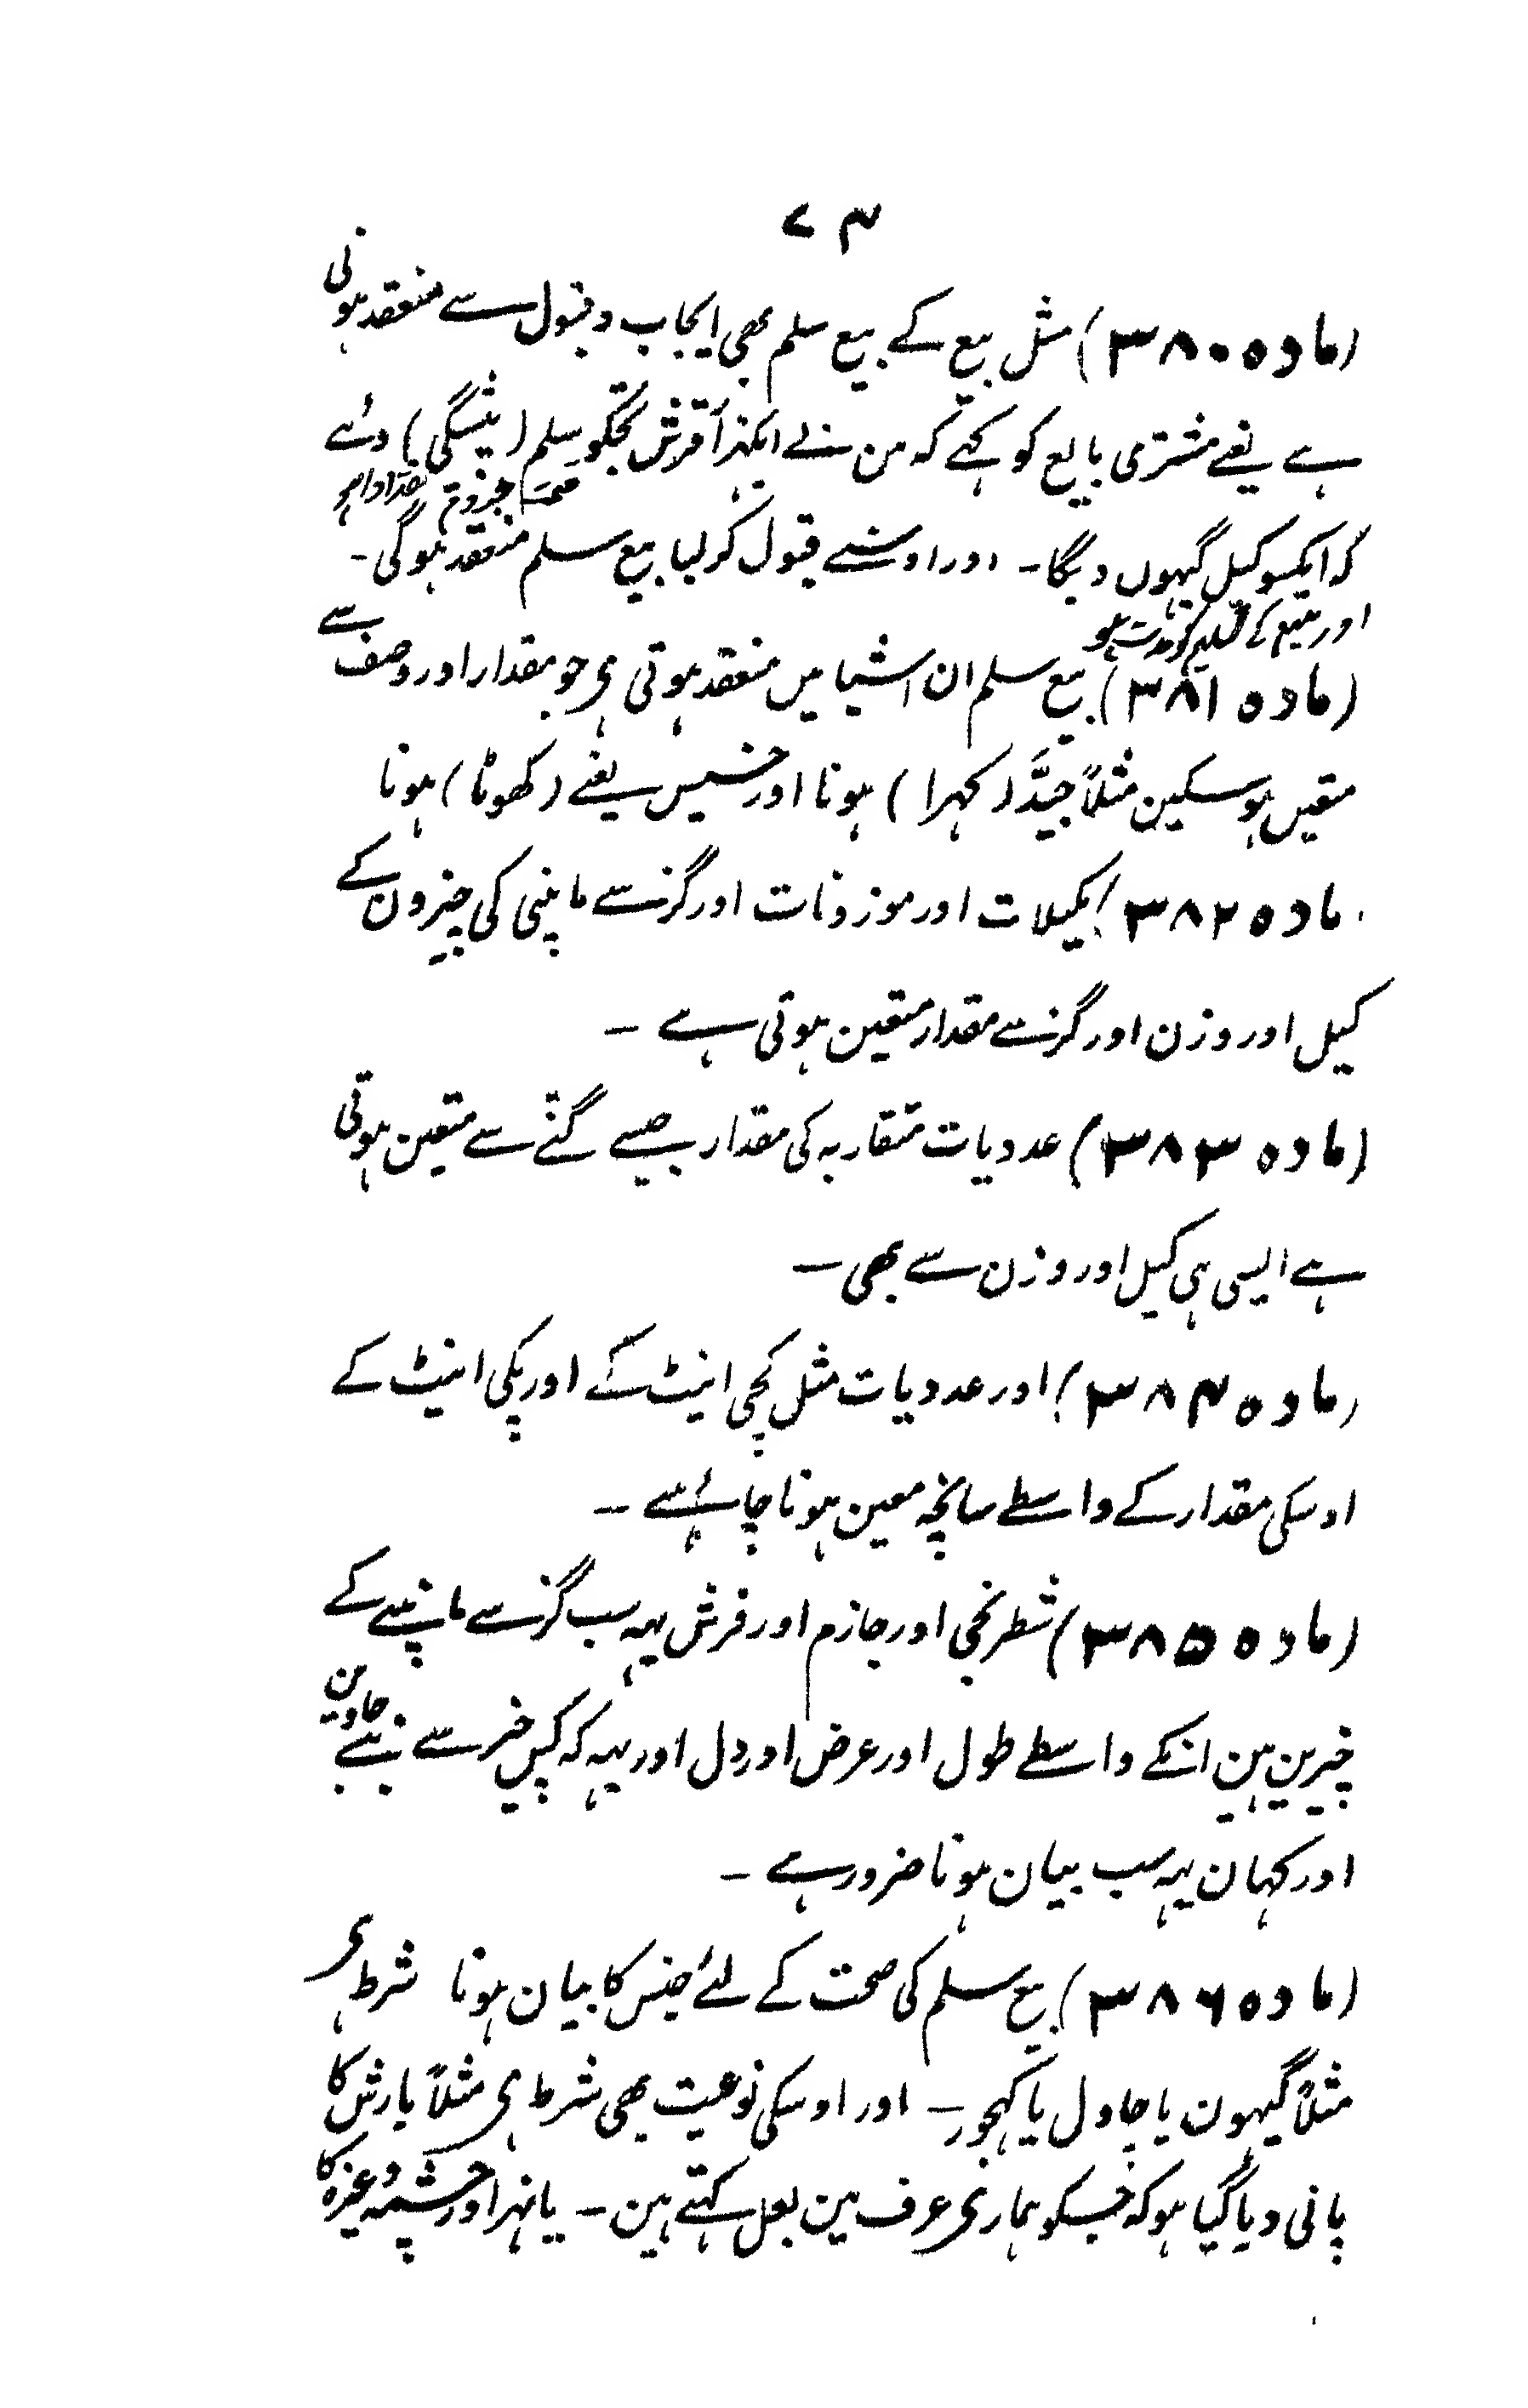 ۷۴
(مادہ ۳۸۰) مثل بیع کے بیع سلم بھی ایجاب وقبول سے منعقد ہوتی
ہے یعنے مشتری بایع کو کہے کہ من نے ایکہزار قرش تجکو سلم (پیشگی) دئے
نقدا داہو
کہ ایکسو کیل گیہوں دیگا۔ اور اوسنے قبول کرلیا بیع سلم منعقد ہوگی۔
اور مبیع کے تسلیم کو مدت ہو
(مادہ ۳۸۱) بیع سلم ان اشیا میں منعقد ہوتی ہی جو مقدار اور وصف سے
متعیں ہوسکین مثلاً جیّد (کہرا) ہونا اور خسیس یعنے (کھوٹا) ہونا
مادہ ۳۸۲) کمیلات اور موزونات اور گز سے ماپنی کی چیزون کے
کیل اور وزن اور گز سے مقدار متعین ہوتی ہے ۔
(مادہ ۳۸۳) عددیات متقاربہ کی مقدار جیسے گننے سے متعین ہوتی
ہے ایسی ہی کیل اور وزن سے بھی ۔
(مادہ ۳۸۴) اور عددیات مثل کچی اینٹ کے اور پکی اینٹ کے
اوسکی مقدار کے واسطے سانچہ معین ہونا چاہئے ۔
(مادہ ۳۸۵) شطرنجی اور جازم اور فرش یہہ سب گز سے ماپنے کے
چیزین ہین انکے واسطے طول اور عرض اور دل اور یہہ کہ کس چیز سے بنے جاوین
اور کہان یہہ سب بیان ہونا ضرور ہے ۔
(مادہ ۳۸۶) بیع سلم کی صحت کے لئے جنس کا بیان ہونا شرط ہی
مثلاً گیہون یا چاول یا کہجور ۔ اور اوسکی نوعیت بھی شرط ہی مثلاً بارش کا
پانی دیا گیا ہو کہ جسکو ہماری عرف مین بعل کہتے ہین ۔ یا نہر اور چشمہ وغیرہ کا